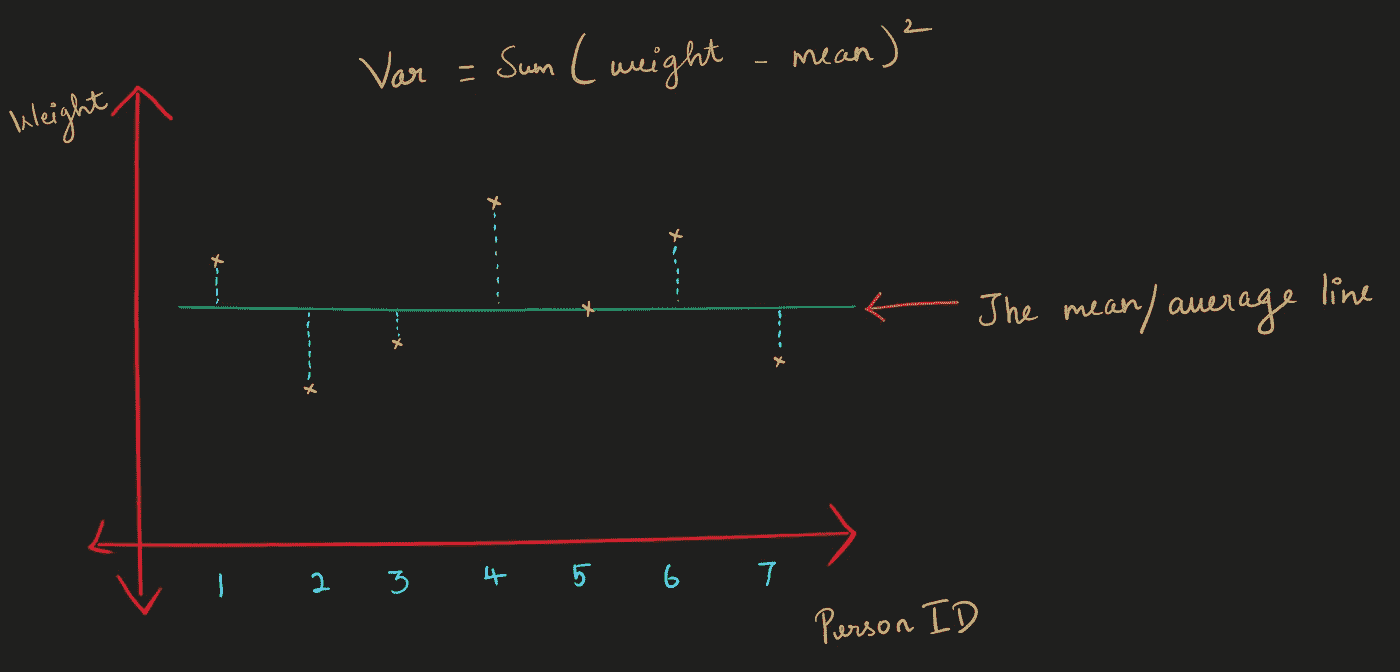 Var = Sum ( weight - mean )²
Weight
The mean/average line
1 2 3 4 5 6 7
Person ID